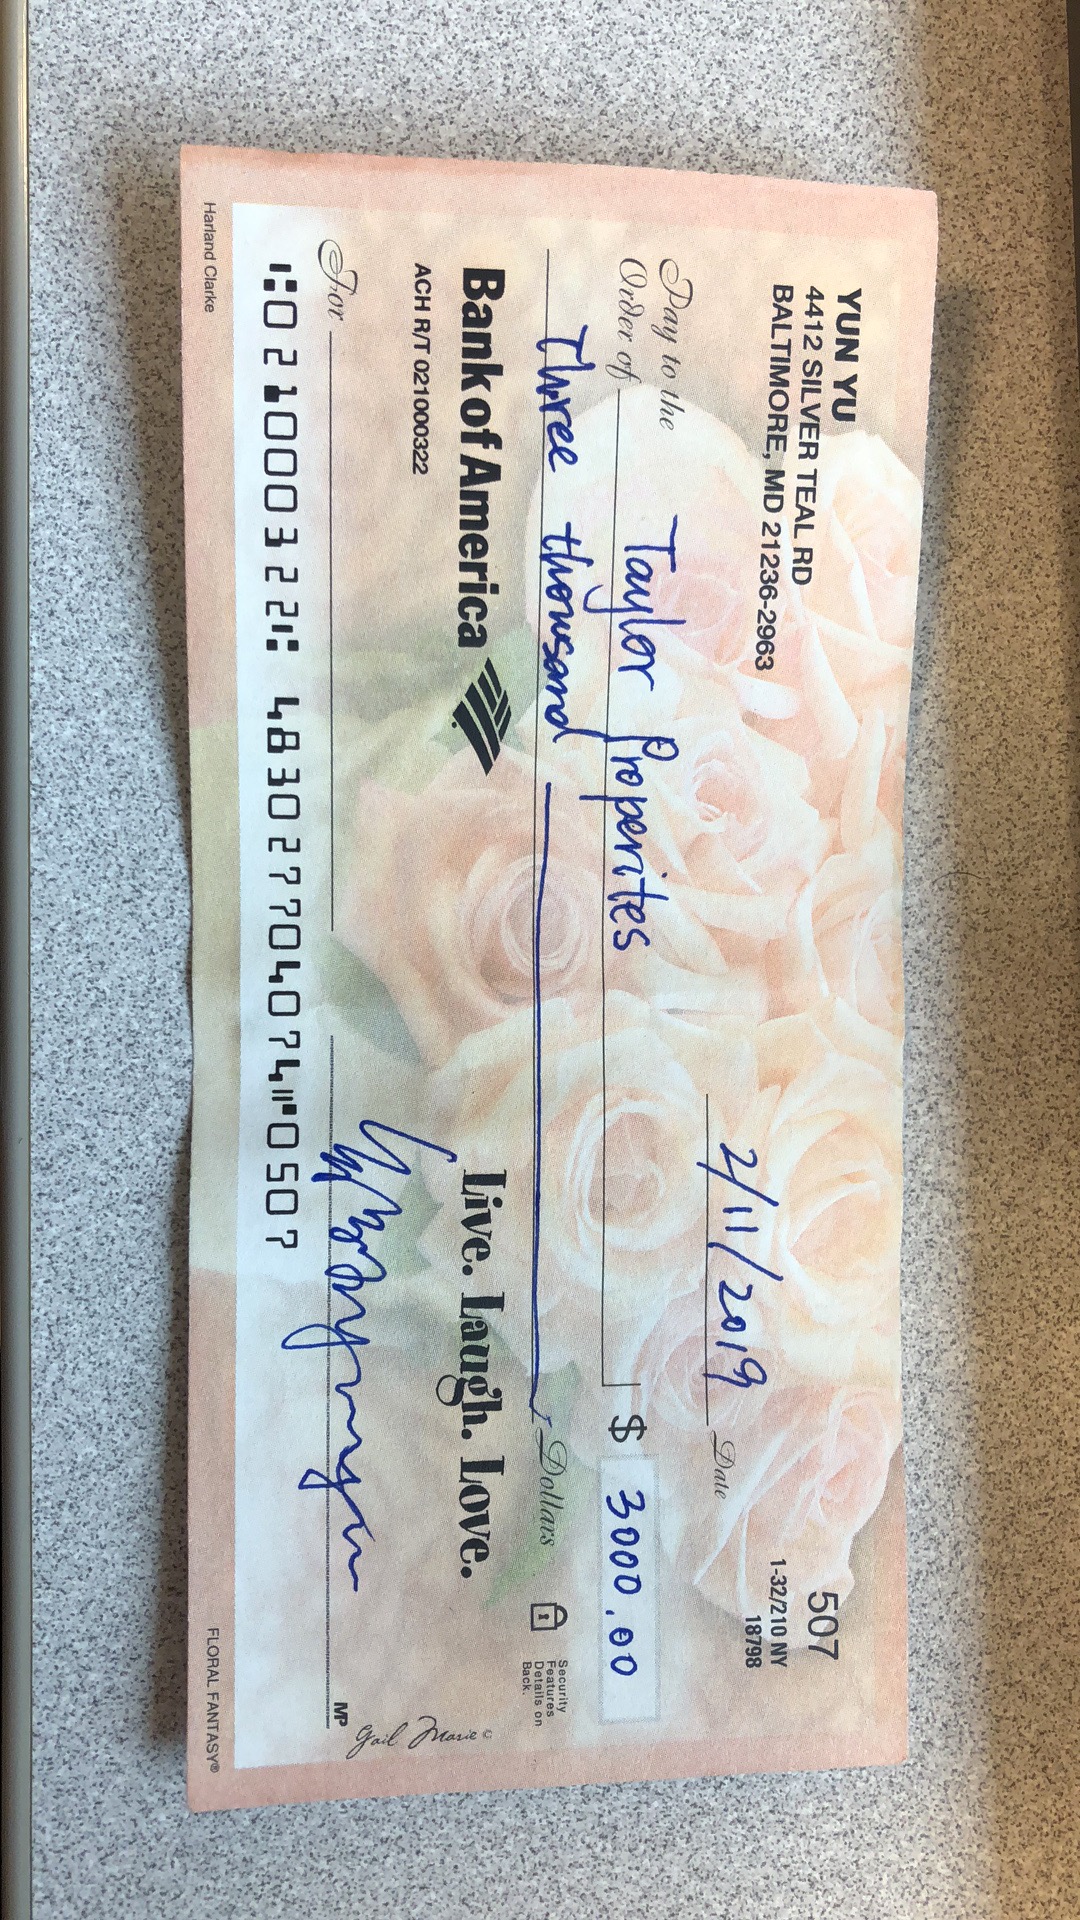 YUN YU
4412 SILVER TEAL RD
BALTIMORE, MD 21236-2963
507
1-32/210 NY
18798
2/11/2019 Date
Pay to the
Order of Taylor Properites $ 3000.00
Three thousand Dollars
Security
Features
Details on
Back.
Bank of America
Live. Laugh. Love.
ACH R/T 021000322
Gail Marie ©
For
MP
⑆021000322⑆ 483027704074⑈0507
Harland Clarke
FLORAL FANTASY®